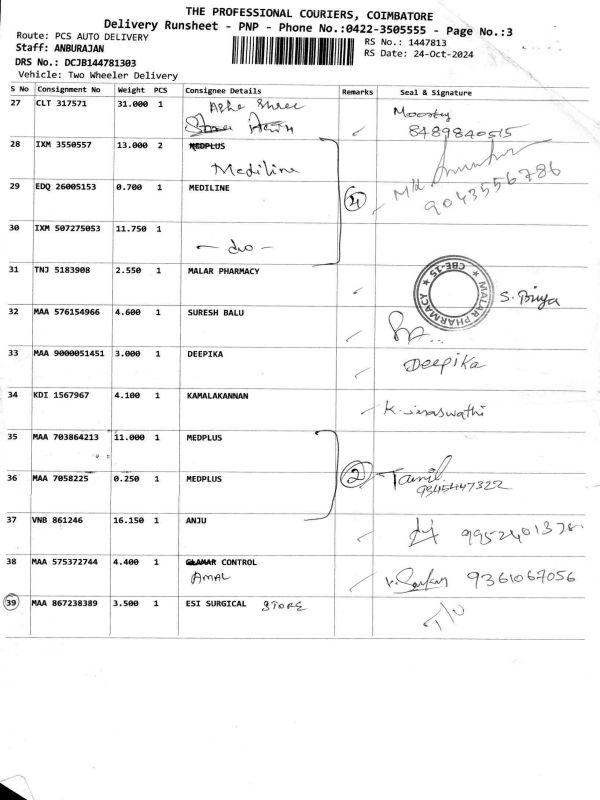 THE PROFESSIONAL COURIERS, COIMBATORE
Delivery Runsheet - PNP - Phone No.:0422-3505555 - Page No.:3
Route: PCS AUTO DELIVERY
RS No.: 1447813
Staff: ANBURAJAN
RS Date: 24-Oct-2024
DRS No.: DCJB144781303
Vehicle: Two Wheeler Delivery
S No Consignment No Weight PCS Consignee Details Remarks Seal & Signature
27 CLT 317571 31.000 1 Moorthy
8489840515
28 IXM 3550557 13.000 2 MEDPLUS
Mediline
29 EDQ 26005153 0.700 1 MEDILINE 4 9043556786
30 IXM 507275053 11.750 1
- do -
31 TNJ 5183908 2.550 1 MALAR PHARMACY
MALAR PHARMACY ★ CBE-15 ★ S. Priya
32 MAA 576154966 4.600 1 SURESH BALU
33 MAA 9000051451 3.000 1 DEEPIKA Deepika
34 KDI 1567967 4.100 1 KAMALAKANNAN
35 MAA 703864213 11.000 1 MEDPLUS
36 MAA 7058225 0.250 1 MEDPLUS 2 Tamil
37 VNB 861246 16.150 1 ANJU 9952401378
38 MAA 575372744 4.400 1 GLAMAR CONTROL
AMAL 9361067056
39 MAA 867238389 3.500 1 ESI SURGICAL STORE